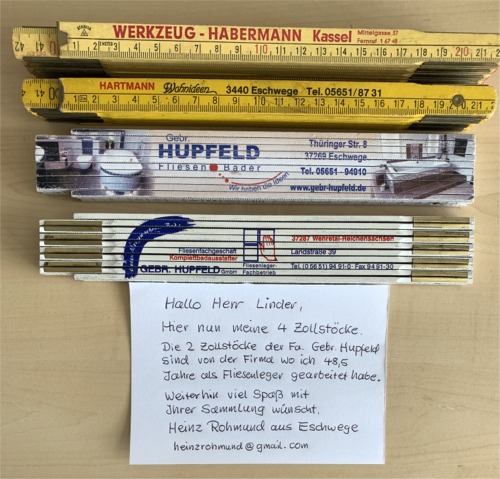 WERKZEUG - HABERMANN Kassel
Mittelgasse 37
HARTMANN Wohnideen 3440 Eschwege Tel. 05651/87 31
Gebr.
HUPFELD
Fliesen Bäder
Wir haben die Ideen
Thüringer Str. 8
37269 Eschwege
Tel. 05651 - 94910
www.gebr-hupfeld.de
Fliesenfachgeschäft
Komplettbadausstatter
GEBR. HUPFELD GmbH
Fliesenleger-
Fachbetrieb
37287 Wehretal-Reichensachsen
Landstraße 39
Tel. (0 56 51) 94 91-0 · Fax 94 91-30
Hallo Herr Linder,
Hier nun meine 4 Zollstöcke.
Die 2 Zollstöcke der Fa. Gebr. Hupfeld
sind von der Firma wo ich 48,5
Jahre als Fliesenleger gearbeitet habe.
Weiterhin viel Spaß mit
Ihrer Sammlung wünscht,
Heinz Rohmund aus Eschwege
heinzrohmund@gmail.com